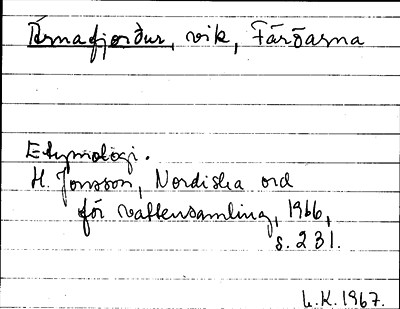 Árnafjorður, vik, Färöarna
Etymologi.
H. Jonsson, Nordiska ord
för vattensamling, 1966,
s. 231.
L.K. 1967.